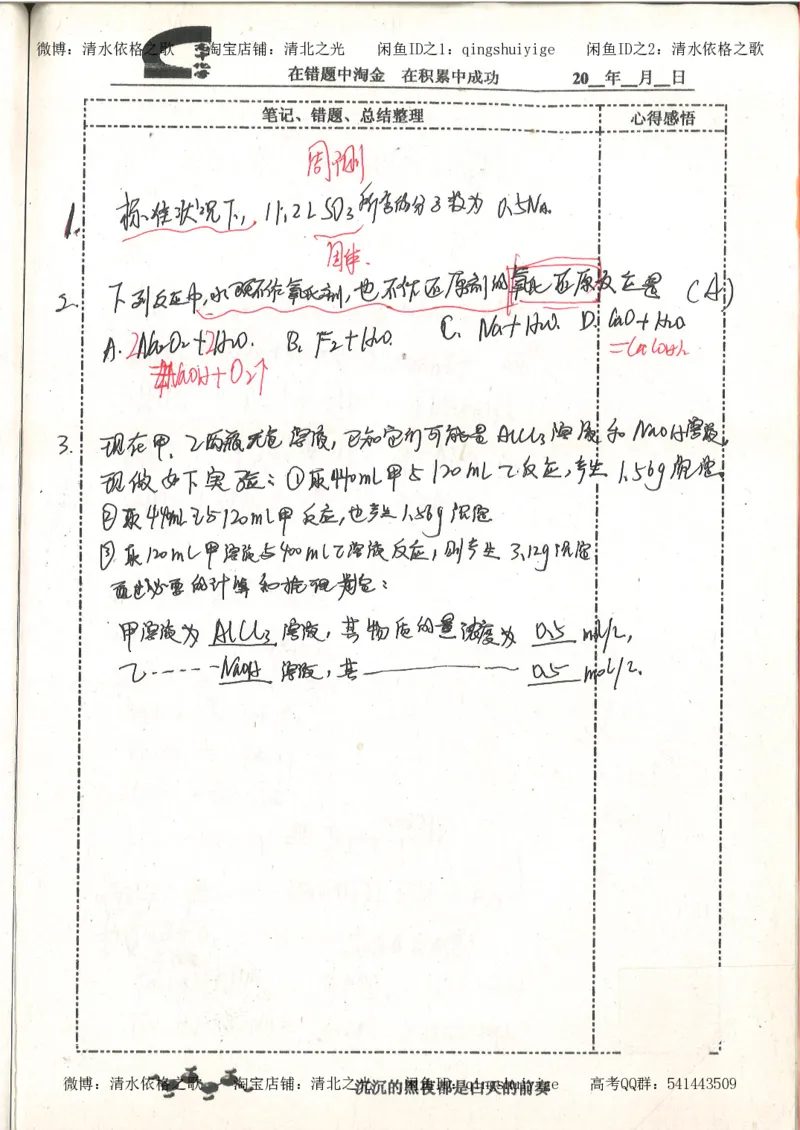 微博：清水依格之歌 淘宝店铺：清北之光 闲鱼ID之1：qingshuiyige 闲鱼ID之2：清水依格之歌
在错题中淘金 在积累中成功 20__年__月__日
笔记、错题、总结整理 心得感悟
周测
1. 标准状况下, 11.2L SO3所含的分子数为 0.5NA.
固体.
2. 下列反应中,水既不作氧化剂,也不作还原剂的氧化还原反应是 (A)
A. 2Na2O2+2H2O. B. F2+H2O. C. Na+H2O. D. CaO+H2O
=4NaOH+O2↑ =Ca(OH)2
3. 现有甲、乙两瓶无色溶液,已知它们可能是AlCl3溶液和NaOH溶液,
现做如下实验: ①取440mL甲与120mL乙反应,产生1.56g沉淀
②取440mL乙与120mL甲反应,也产生1.56g沉淀
③取120mL甲溶液与400mL乙溶液反应,则产生3.12g沉淀
通过必要的计算和推理判定:
甲溶液为 AlCl3 溶液, 其物质的量浓度为 0.5 mol/L,
乙-----NaOH 溶液, 其———— 0.5 mol/L.
微博：清水依格之歌 淘宝店铺：清北之光 闲鱼ID：qingshuiyige 高考QQ群：541443509
沉沉的黑夜都是白天的前奏